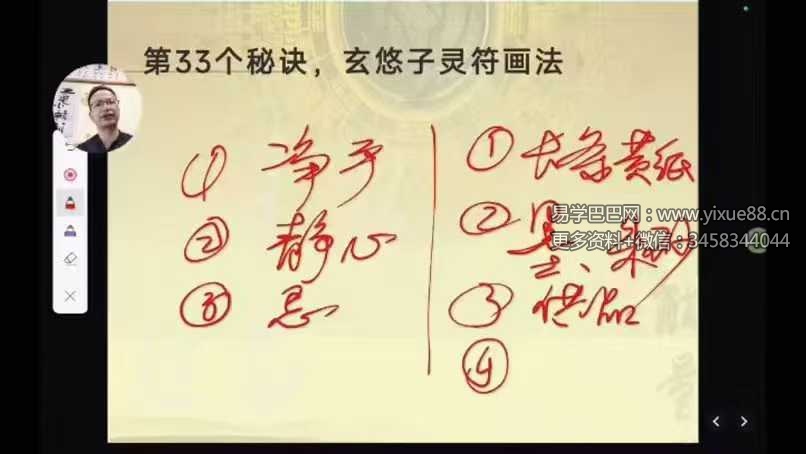 第33个秘诀，玄悠子灵符画法
① 净手
② 静心
③ 忌
① 长条黄纸
② 墨、朱砂
③ 供品
④
易学巴巴网：www.yixue88.cn
更多资料+微信：3458344044